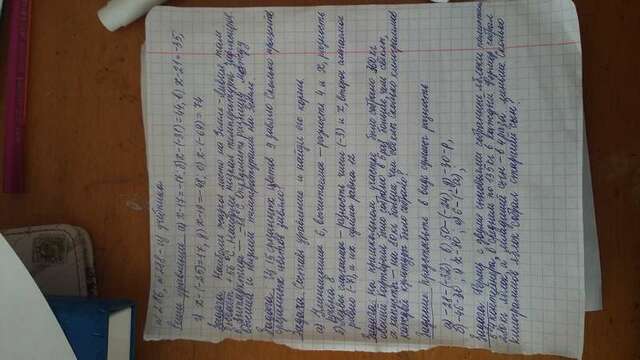 №286, №288 - из учебника
Реши уравнение а) x-17=-17, б) x-(-31)=44, в) x-21=-35,
г) x-(-25)=17, д) x-19=-48; е) x-(-64)=74
Задача. Наиболее жаркое место на Земле - Ливия, там
бывает +58 °C. Наиболее низкая температура зафиксиров.
в Антарктиде - -88 °C Определите разницу между
высшей и низшей температурами на Земле.
Задача. Из 15 срезанных цветов 9 завяло. Сколько процентов
срезанных цветов завяло?
Задача. Составь уравнение и найди его корни
а) Уменьшаемое 6, вычитаемое - разность 4 и x, разность
равна 5
б) Первое слагаемое - разность чисел (-3) и x, второе слагаемое
равно (-4), и их сумма равна 12
Задача. На пришкольном участке было собрано 360 кг
овощей картофеля было собрано в 5 раз больше, чем свеклы,
а капусты - на 80 кг больше, чем свеклы Сколько килограммов
каждой культуры было собрано?
Задание. Представьте в виде суммы разность
а) -28-(-32), б) 50-(-24), д) -30-p,
б) -46-30, г) x-80, е) 6-(-a),
Задача. Фермер с двумя сыновьями собранные яблоки поместили
в 4 контейнера, в среднем по 135 кг в каждый Фермер собрал
280 кг яблок, а младший сын - в 4 раза меньше. Сколько
килограммов яблок собрал старший сын?